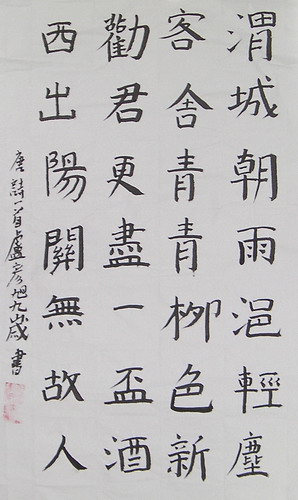 渭城朝雨浥輕塵
客舍青青柳色新
勸君更盡一盃酒
西出陽關無故人
唐詩一首盧彥旭九歲書